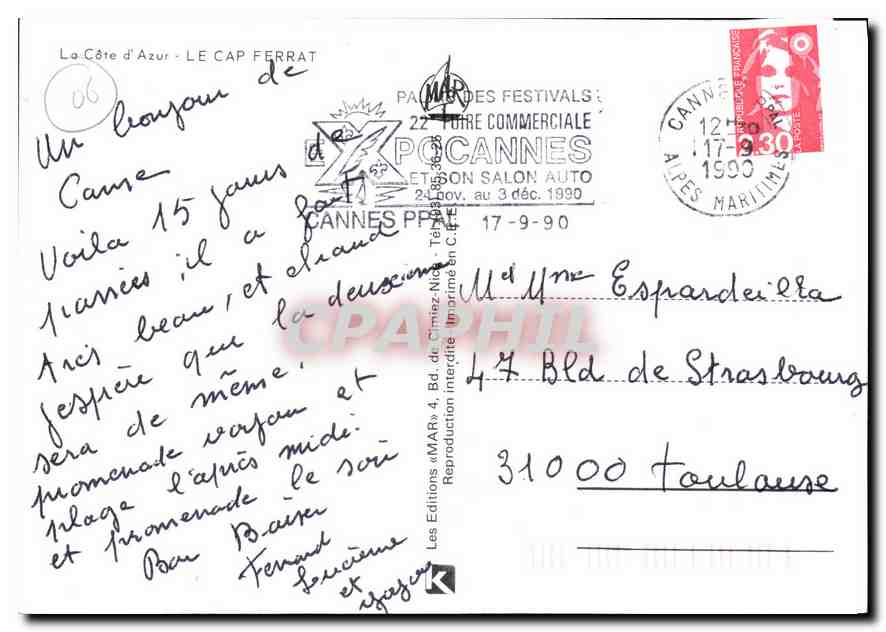 La Côte d'Azur - LE CAP FERRAT
06
Un bonjour de
Canne
Voila 15 jours de
passées, il a fait
tres beau, et chaud
j'espère que la deuxieme
sera de même,
promenade et
plage l'après midi.
et promenade le soir
Bon Baiser
Fernand
Lucienne
et
MAR
PALAIS DES FESTIVALS
22 FOIRE COMMERCIALE
EXPOCANNES
ET SON SALON AUTO
24 nov. au 3 déc. 1990
CANNES PPAL 17-9-90
CANNES PPAL
12-30
17-9
1990
ALPES MARITIMES
REPUBLIQUE FRANÇAISE
2,30
LA POSTE
Les Editions «MAR» 4, Bd. de Cimiez-Nice - Tél. (93) 85.36.28
Reproduction interdite - Imprimé en C.E.E.
K
Md Mme Espardeilla
47 Bld de Strasbourg
31000 Toulouse
CPAPHIL